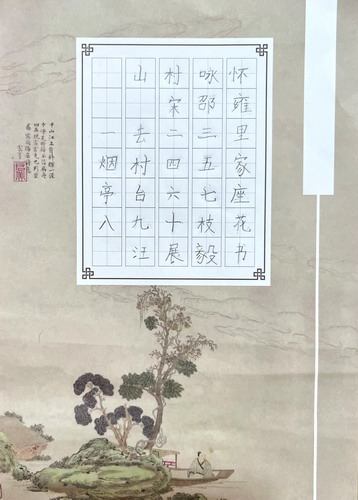 山村咏怀
宋邵雍
一去二三里
烟村四五家
亭台六七座
八九十枝花
汪展毅书